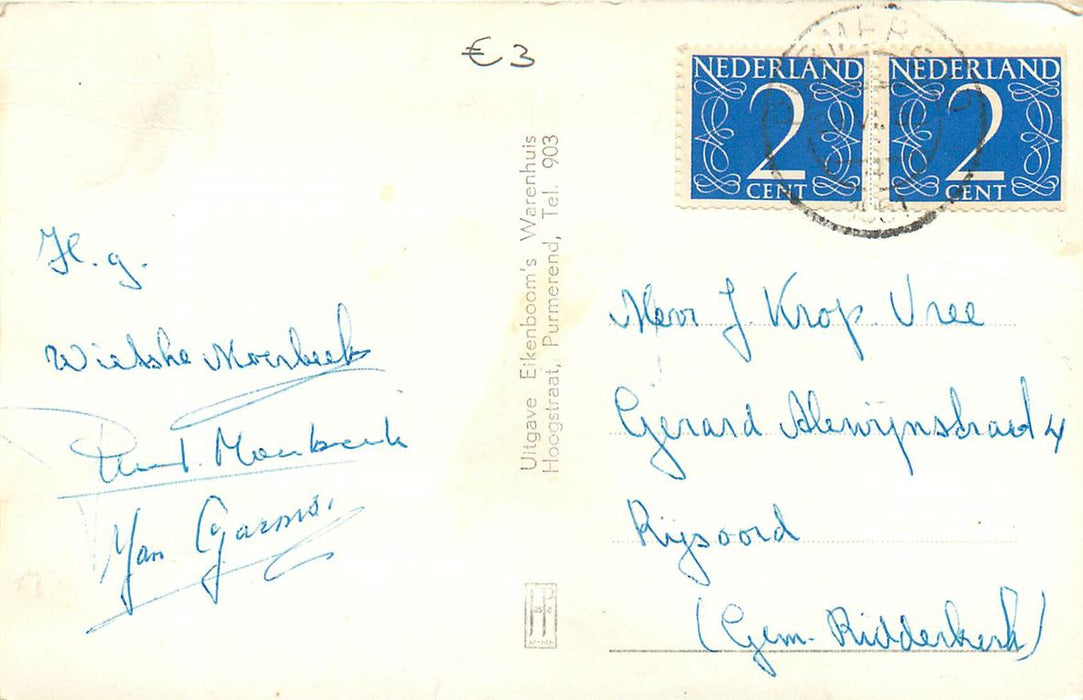 € 3
NEDERLAND NEDERLAND
2 2
CENT CENT
H. g.
Wietske Moerbeek
Moerbeek
Jan
Uitgave Eikenboom's Warenhuis
Hoogstraat, Purmerend, Tel. 903
J. Krop. Vree
Gerard Alewijnstraat 4
Rijsoord
(Gem. Ridderkerk)